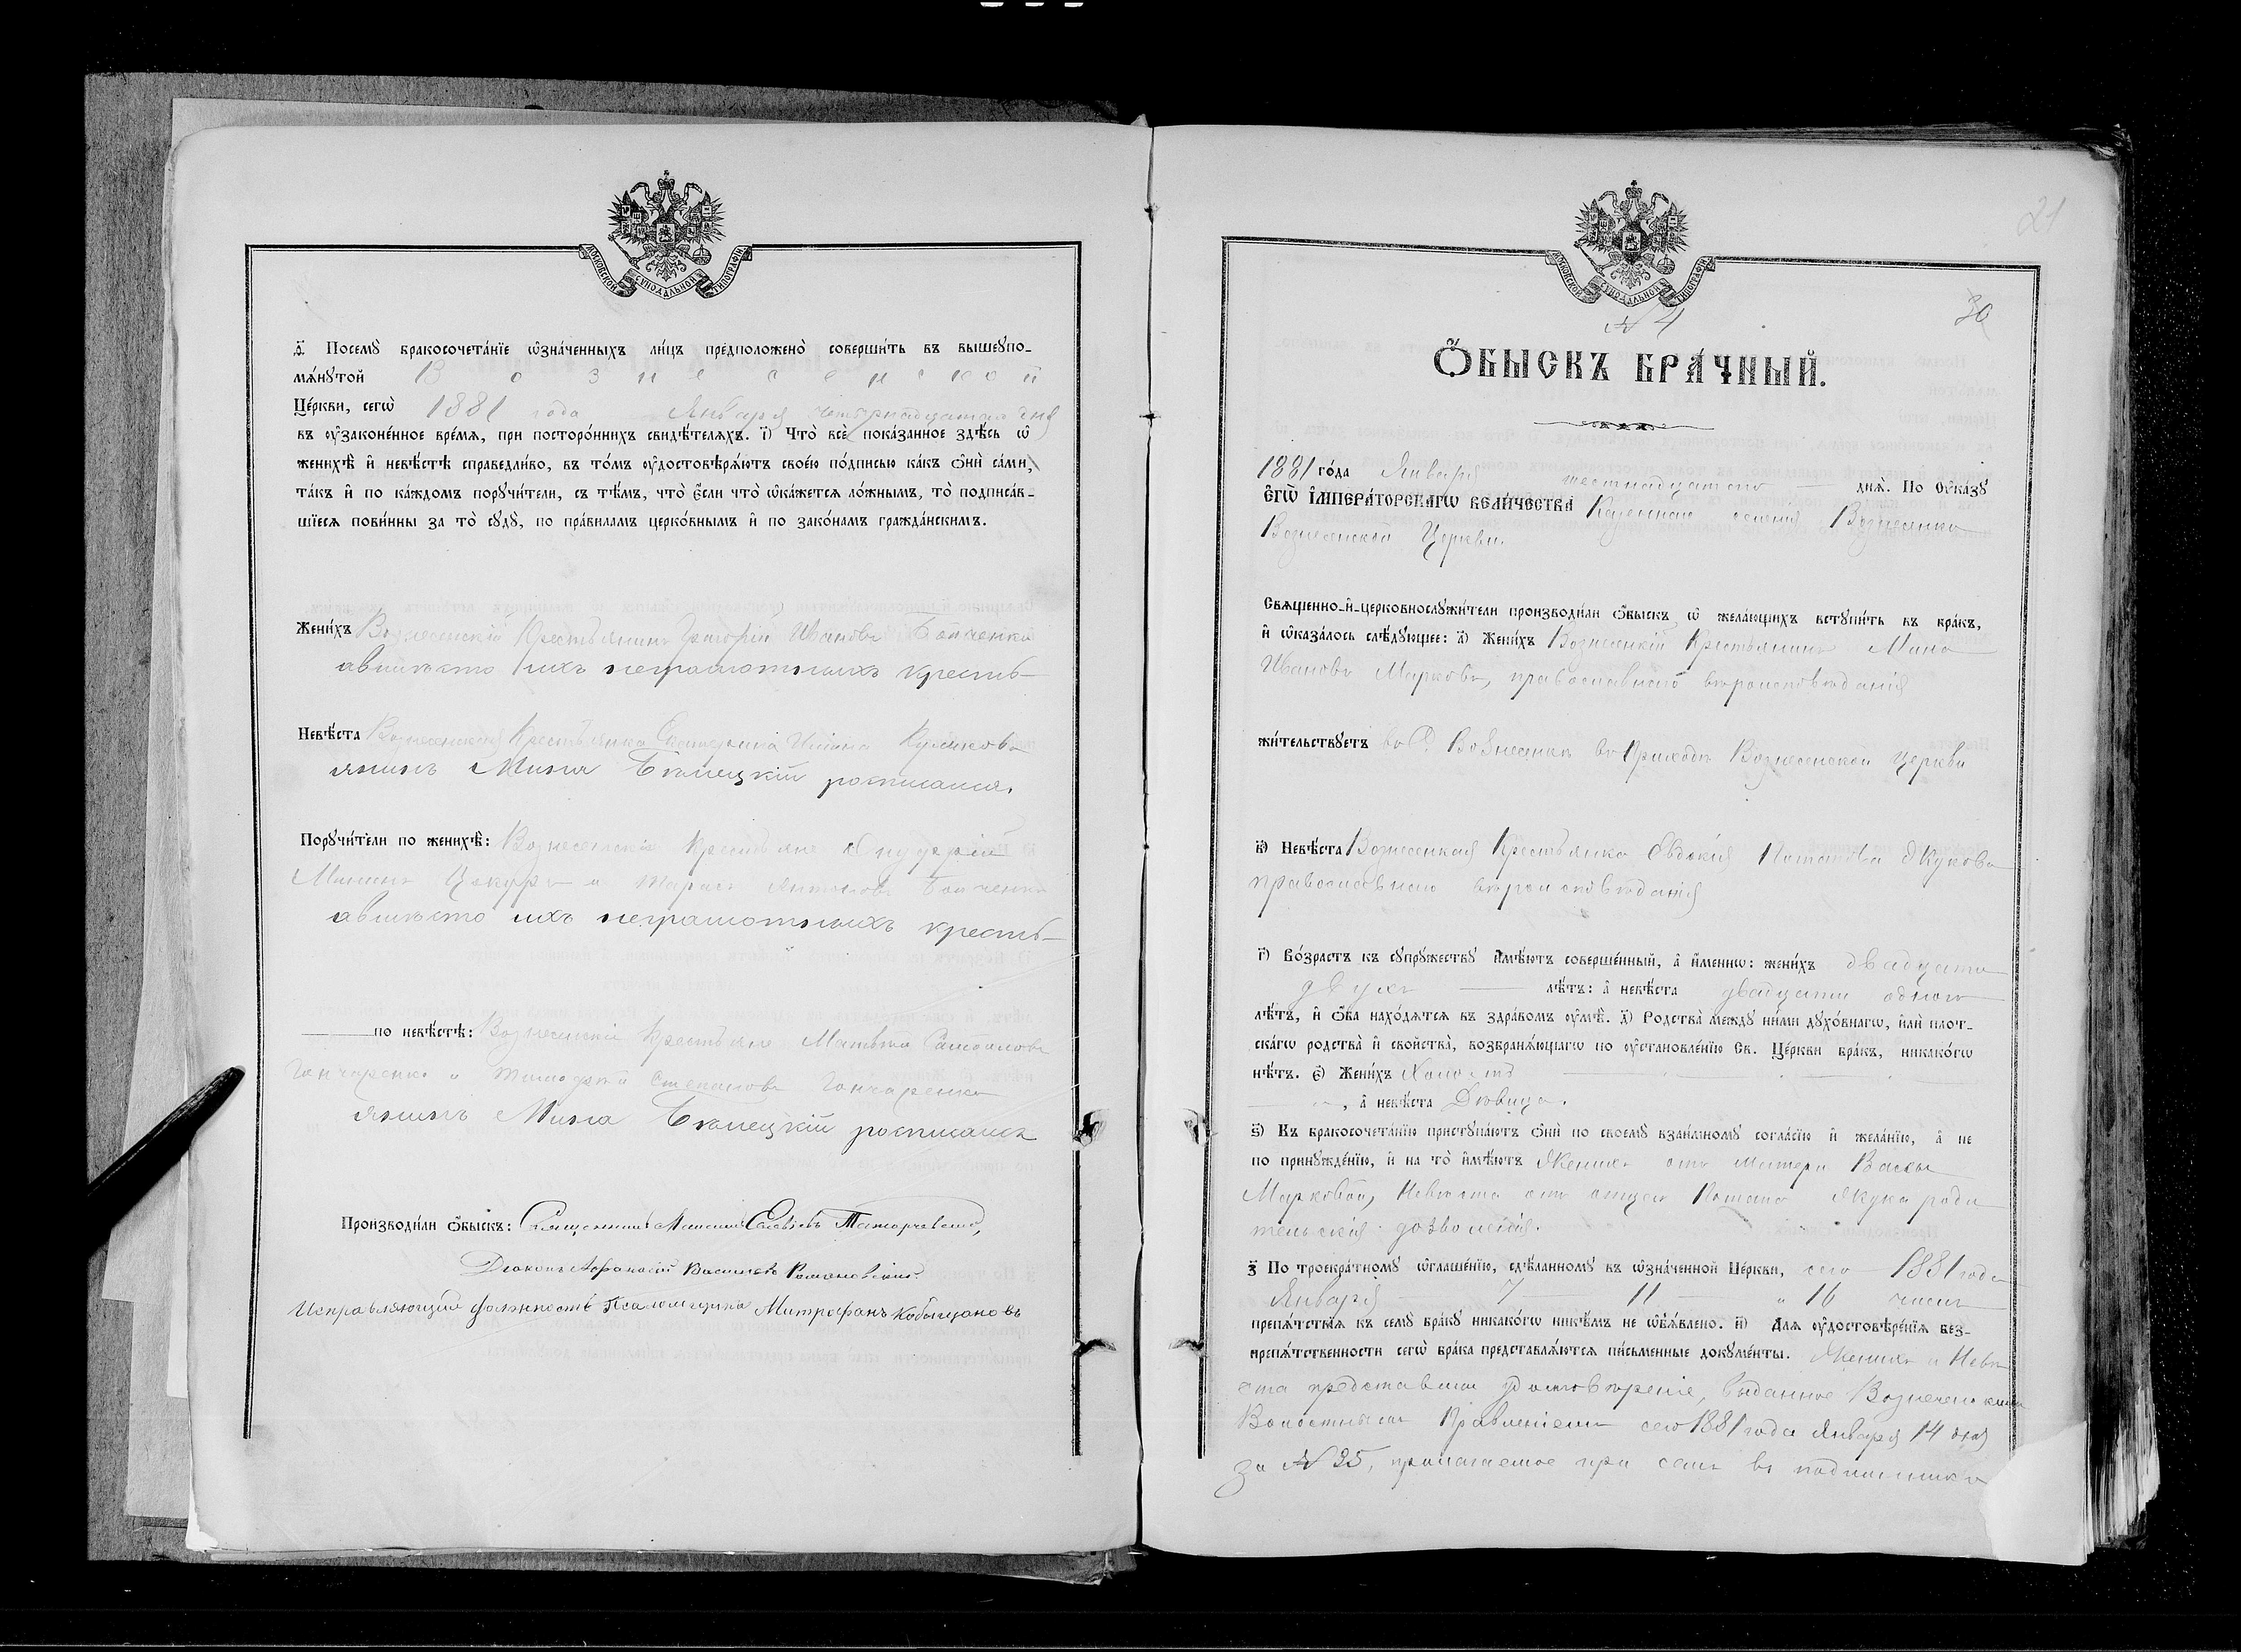 МОСКОВСКОЙ СѴНОДАЛЬНОЙ ТИПОГРАФІИ
д҃. Посемꙋ бракосочета́нїе ѡ҆зна́ченныхъ ли́цъ предположено̀ соверши́ть въ вышеꙋпо-
мѧ́нꙋтой Вознесенской
Це́ркви, сегѡ̀ 1881 года Января четырнадцатого дня
въ ᲂу҆зако́ненное вре́мѧ, при посторо́ннихъ свидѣ́телѧхъ. і҃) Что̀ всѐ пока́занное здѣ́сь ѡ҆
женихѣ̀ и҆ невѣ́стѣ справедли́во, въ то́мъ ᲂу҆достовѣрѧ́ютъ свое́ю по́дписью ка́къ ѻ҆нѝ са́ми,
та́къ и҆ по ка́ждомъ порꙋчи́тели, съ тѣ́мъ, что̀ є҆́сли что̀ ѡ҆ка́жетсѧ ло́жнымъ, то̀ подписа́в-
шїесѧ пови́нны за то̀ сꙋдꙋ̀, по пра́виламъ церко́внымъ и҆ по зако́намъ гражда́нскимъ.
Жени́хъ Вознесенскій Крестьянинъ Григорій Ивановъ Бойченко
авмѣсто ихъ неграмотныхъ кресть-
Невѣ́ста Вознесенская Крестьянка Екатерина Куликова
янинъ Мина Бѣлецкій росписался.
Порꙋчи́тели по женихѣ̀: Вознесенскіе Крестьяне
Мининъ и Тарасъ Антоновъ Бойченко
авмѣсто ихъ неграмотныхъ кресть-
по невѣ́стѣ: Вознесенскіе Крестьяне Матвѣй
Гончаренко и Тимофей Степановъ Гончаренко
янинъ Мина Бѣлецкій росписался
Производи́ли ѻ҆́быскъ: Священникъ
Діаконъ Афанасій Васильевъ Романовскій
Исправляющій должность Псаломщика Митрофанъ
21
МОСКОВСКОЙ СѴНОДАЛЬНОЙ ТИПОГРАФІИ
30
№ 4
Ѻ҆́БЫСКЪ БРА́ЧНЫЙ.
1881 го́да Января шестнадцатого днѧ̀. По Ѹ҆ка́зꙋ
Є҆гѡ̀ И҆мпера́торскагѡ вели́чества Казеннаго селенія Вознесенки
Вознесенской Церкви.
Свѧще́нно-и҆-церковнослꙋжи́тели производи́ли ѻ҆́быскъ ѡ҆ жела́ющихъ встꙋпи́ть въ бра́къ,
и҆ ѡ҆каза́лось слѣ́дꙋющее: а҃) Жени́хъ Вознесенскій Крестьянинъ Мина
Ивановъ Марковъ, православнаго вѣроисповѣданія
жи́тельствꙋетъ въ С. Вознесенкѣ въ Приходѣ Вознесенской Церкви
в҃) Невѣ́ста Вознесенская Крестьянка Евдокія Потапова Жукова
православнаго вѣроисповѣданія
г҃) Во́зрастъ къ сꙋпрꙋ́жествꙋ и҆мѣ́ютъ соверше́нный, а҆ и҆́менно: жени́хъ двадцати
двухъ лѣ́тъ: а҆ невѣ́ста двадцати одного
лѣ́тъ, и҆ ѻ҆́ба нахо́дѧтсѧ въ здра́вомъ ᲂу҆мѣ̀. д҃) Родства̀ междꙋ ни́ми дꙋхо́внагѡ, и҆лѝ плот-
ска́гѡ родства̀ и҆ свойства̀, возбранѧ́ющагѡ по ᲂу҆становле́нїю Св. Це́ркви бра́къ, никако́гѡ
нѣ́тъ. є҃) Жени́хъ Холостъ
, а҆ невѣ́ста Дѣвица.
ѕ҃) Къ бракосочета́нїю пристꙋпа́ютъ ѻ҆нѝ по своемꙋ̀ взаи́мномꙋ согла́сїю и҆ жела́нїю, а҆ не
по принꙋжде́нїю, и҆ на то̀ и҆мѣ́ютъ Женихъ отъ матери Вассы
Марковой, Невѣста отъ отца Потапа Жука роди
тельскія дозволенія.
з҃ По троекра́тномꙋ ѡ҆глаше́нїю, сдѣ́ланномꙋ въ ѡ҆зна́ченной Це́ркви, сего 1881 года
Января 7 11 " 16 чиселъ
препѧ́тствїѧ къ семꙋ̀ бра́кꙋ никако́гѡ никѣ́мъ не ѡ҆б̾ѧ́влено. и҃) Длѧ ᲂу҆достовѣре́нїѧ без-
препѧ́тственности сегѡ̀ бра́ка представлѧ́ютсѧ пи́сьменные докꙋме́нты. Женихъ и Невѣ
ста представили удостовѣреніе, выданное Вознесенскимъ
Волостнымъ Правленіемъ сего 1881 года Января 14 дня
за № 35, прилагаемое при семъ въ подлинникѣ